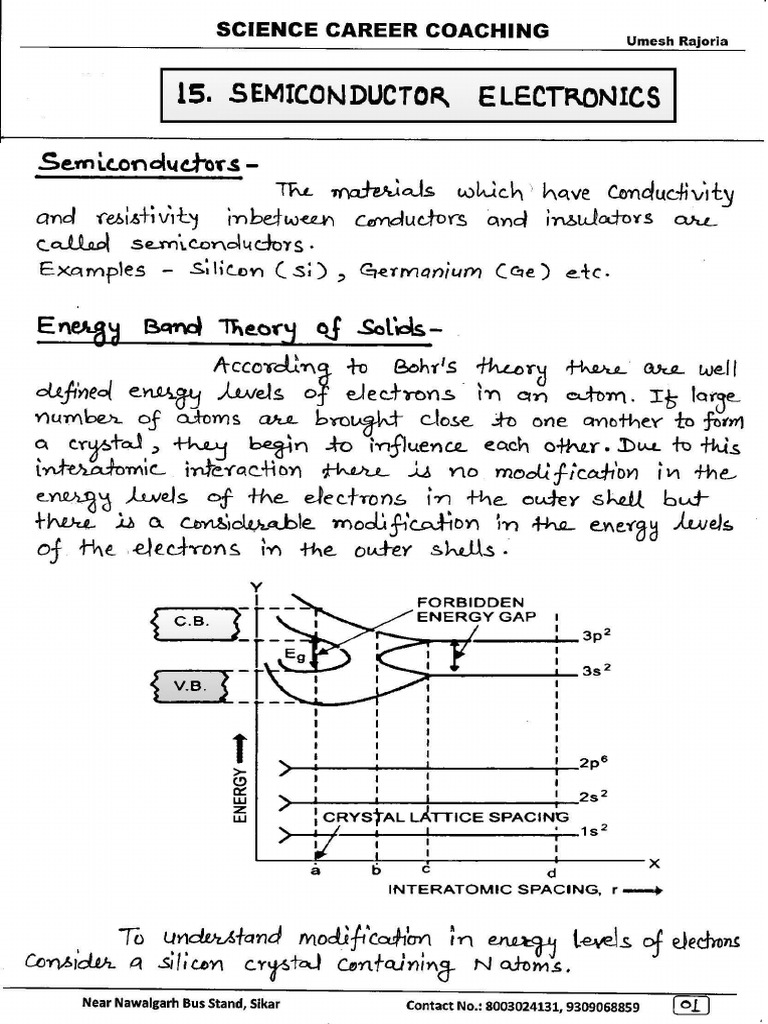 SCIENCE CAREER COACHING
Umesh Rajoria
15. SEMICONDUCTOR ELECTRONICS
Semiconductors -
The materials which have conductivity
and resistivity inbetween conductors and insulators are
called semiconductors.
Examples - Silicon (Si), Germanium (Ge) etc.
Energy Band Theory of Solids -
According to Bohr's theory there are well
defined energy levels of electrons in an atom. If large
number of atoms are brought close to one another to form
a crystal, they begin to influence each other. Due to this
interatomic interaction there is no modification in the
energy levels of the electrons in the outer shell but
there is a considerable modification in the energy levels
of the electrons in the outer shells.
Y
C.B.
FORBIDDEN
ENERGY GAP
3p²
Eg
3s²
V.B.
2p⁶
2s²
CRYSTAL LATTICE SPACING
1s²
ENERGY
X
a b c d
INTERATOMIC SPACING, r
To understand modification in energy levels of electrons
consider a silicon crystal containing N atoms.
Near Nawalgarh Bus Stand, Sikar
Contact No.: 8003024131, 9309068859
01